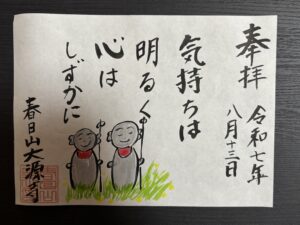 奉拝
令和七年
八月十三日
気持ちは
明るく
心は
しずかに
春日山大源寺